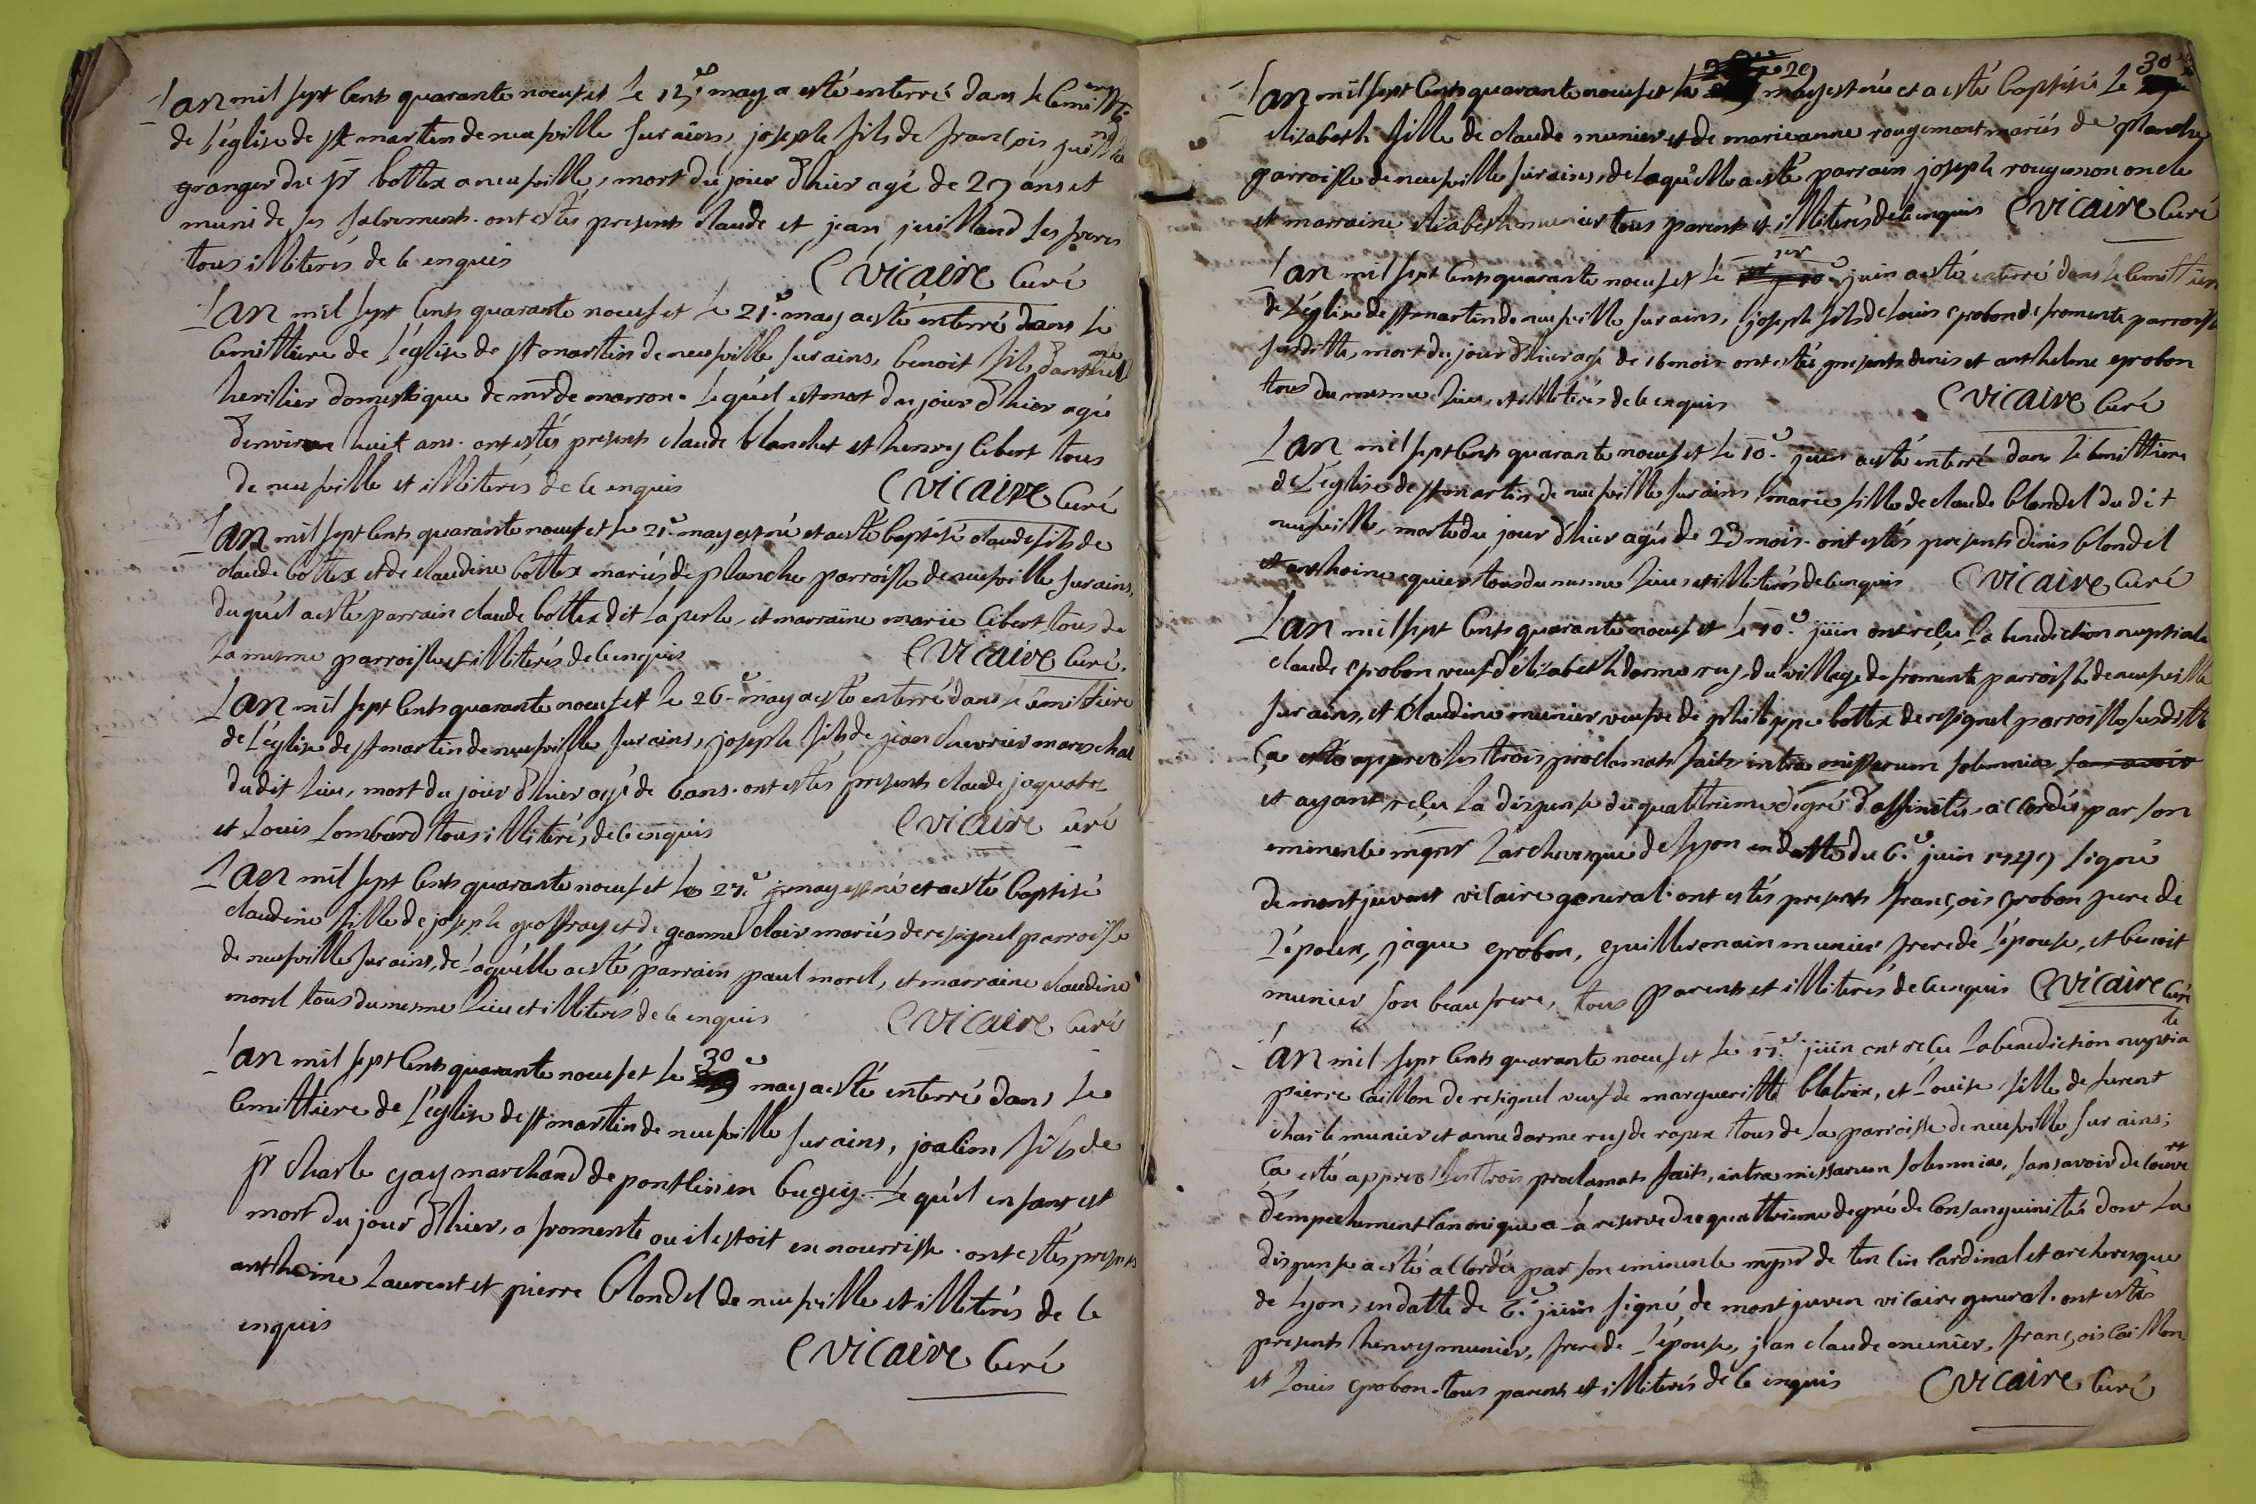 L'an mil sept cents quarante noeuf et le 12.e may a esté enterré dans le cemittie
de l'église de st martin de neufville sur ains, joseph fils de françois juilland
granger du sr bottex a neufville, mort du jour d'hier agé de 27 ans et
muni de ses sacrements. ont estés presents claude et jean juilland ses freres
tous illiterés de ce enquis
C vicaire Curé
L'an mil sept cents quarante noeuf et le 21.e may a esté enterré dans le
cemittiere de l'église de st martin de neufville sur ains, benoit fils
heritier domestique de mr de marron. le quel est mort du jour d'hier agé
d'environ huit ans. ont estés presents claude blanchet et henry Cibert tous
de neufville et illiterés de ce enquis
C vicaire Curé
L'an mil sept cents quarante noeuf et le 21.e may est né et a esté baptisé claude fils de
claude bottex et de claudine bottex mariés de planche parroisse de neufville sur ains,
du quel a esté parrain claude bottex dit la perle, et marraine marie Cibert tous de
la mesme parroisse et illiterés de ce enquis
C vicaire Curé.
L'an mil sept cents quarante noeuf et le 26.e may a esté enterré dans le cemittiere
de l'église de st martin de neufville sur ains, joseph fils de jean mareschal
du dit lieu, mort du jour d'hier agé de 6 ans. ont estés presents claude
et Louis Lombard tous illiterés, de ce enquis
C vicaire curé
L'an mil sept cents quarante noeuf et le 27.e may est né et a esté baptisé
claudine fille de joseph geoffray et de jeanne clair mariés de resignel parroisse
de neufville sur ains, de laquelle a esté parrain paul morel, et marraine claudine
morel tous du mesme lieu et illiterés de ce enquis
C vicaire Curé
L'an mil sept cents quarante noeuf et le 30e may a esté enterré dans le
cemittiere de l'église de st martin de neufville sur ains, joacim fils de
sr charle gay marchand de pontlin en bugey. le quel enfant est
mort du jour d'hier, a fromente ou il estoit en nourrisse. ont estés presents
anthoine Laurent et pierre blondel de neufville et illiterés de ce
enquis
C vicaire Curé
L'an mil sept cents quarante noeuf et le 29 may est née et a esté baptisée le 30
elizabeth fille de claude munier et de marieanne rougemont mariés de planche
parroisse de neufville sur ains, de laquelle a esté parrain joseph rougemont oncle
et marraine elizabeth munier tous parents et illiterés de ce enquis C vicaire Curé
L'an mil sept cents quarante noeuf et le 1er juin a esté enterré dans le cemittiere
de l'église de st martin de neufville sur ains, joseph fils de louis grobon de fromente parroisse
susditte, mort du jour d'hier agé de 16 mois ont estés presents denis et anthelme grobon
tous du mesme lieu, et illiterés de ce enquis
C vicaire Curé
L'an mil sept cents quarante noeuf et le 10.e juin a esté enterré dans le cemittiere
de l'église de st martin de neufville sur ains marie fille de claude blondel du dit
neufville, morte du jour d'hier agée de 23 mois. ont estés presents denis blondel
et anthoine tous du mesme lieu et illiterés de ce enquis C vicaire Curé
L'an mil sept cents quarante noeuf et le 10.e juin ont reçu la benediction nuptiale
claude grobon veuf d'elizabeth darmerey, du village de fromente parroisse de neufville
sur ains, et claudine munier veufve de philippe bottex de resignel parroisse susditte
ça esté apprès les trois proclamats faits intra missarum solemnia sans avoir
et ayant reçu la dispense du quattrieme degré d'affinité accordée par son
eminence mgnr L'archevesque de Lyon en datte du 6.e juin 1749 signé
de montjuvent vicaire general. ont estés presents françois grobon pere de
l'époux, jaque grobon, guillermain munier frere de l'épouse, et benoit
munier son beau frere, tous parents et illiterés de ce enquis C vicaire Curé
L'an mil sept cents quarante noeuf et le 17.e juin ont reçu la benediction nuptiale
pierre caillon de resignel veuf de margueritte blatrix, et Louise fille de furent
charle munier et anne darmerey de tous de la parroisse de neufville sur ains;
ça esté apprès les trois proclamats faits, intra missarum solemnia, sans avoir decouvert
d'empechement canonique a la reserve du quattrieme degré de consanguinité dont la
dispense a esté accordée par son eminence mgnr de ten cin cardinal et archevesque
de Lyon, en datte de 6.e juin signé, de montjuven vicaire general. ont estés
presents henry munier, frere de l'épouse, jean claude munier, françois caillon
et Louis grobon. tous parents et illiterés de ce enquis
C vicaire Curé